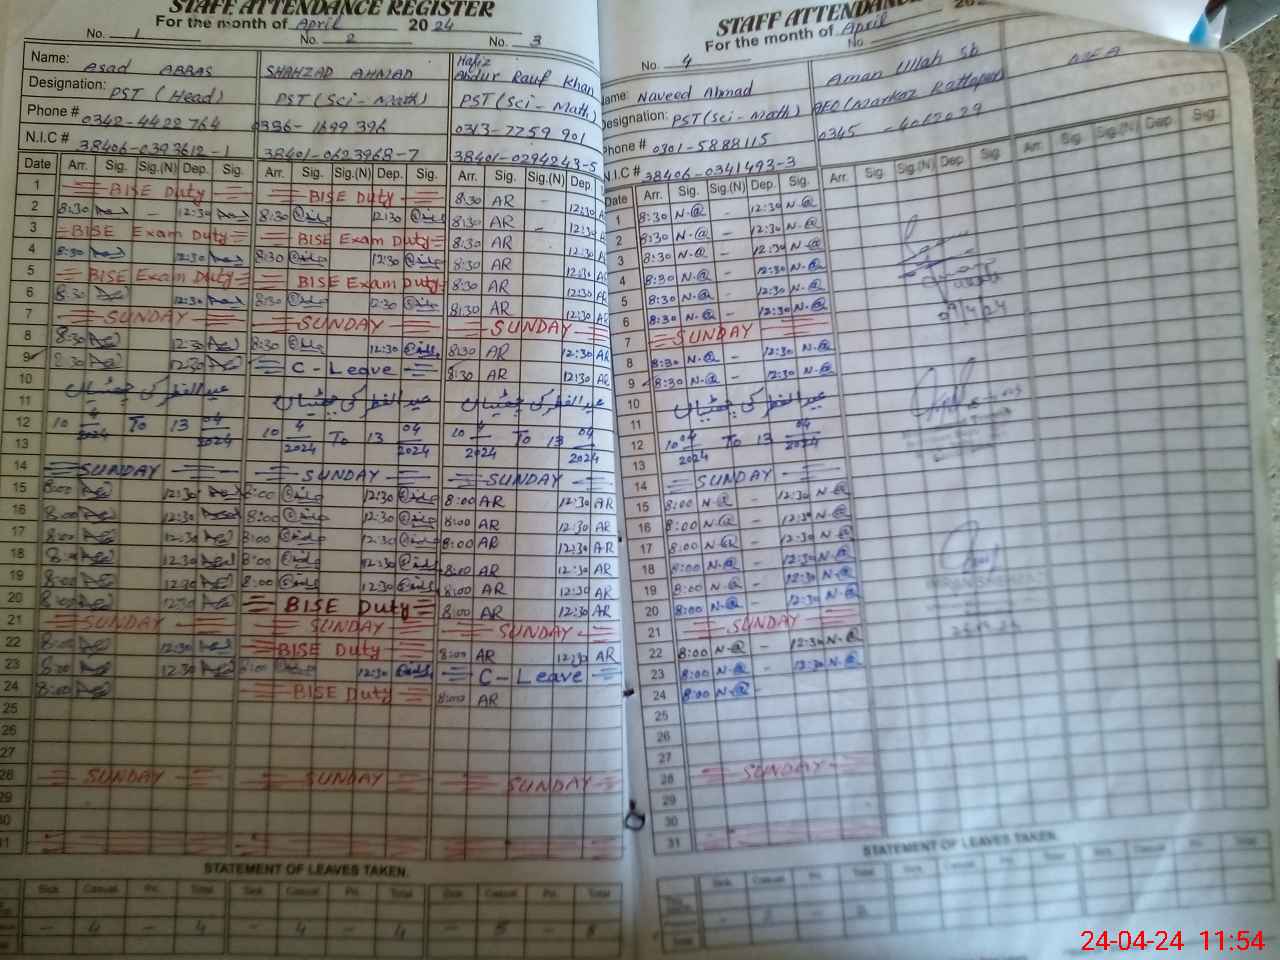 STAFF ATTENDANCE REGISTER
For the month of April 2024
No. 1 No. 2 No. 3
Name: Asad ABBAS SHAHZAD AHMAD Hafiz Abdur Rauf Khan
Designation: PST (Head) PST (Sci-Math) PST (Sci-Math)
Phone # 0342-4422764 0336-1699396 0313-7759901
N.I.C # 38406-0393612-1 38401-0623968-7 38401-0294243-5
Date Arr. Sig. Sig.(N) Dep. Sig. Arr. Sig. Sig.(N) Dep. Sig. Arr. Sig. Sig.(N) Dep.
1 BISE Duty BISE Duty 8:30 AR - 12:30
2 8:30 - 12:30 8:30 12:30 8:30 AR - 12:30
3 BISE Exam Duty BISE Exam Duty 8:30 AR 12:30
4 8:30 12:30 8:30 12:30 8:30 AR 12:30
5 BISE Exam Duty BISE Exam Duty 8:30 AR 12:30
6 8:30 12:30 8:30 12:30 8:30 AR 12:30
7 SUNDAY SUNDAY SUNDAY
8 8:30 12:30 8:30 12:30 8:30 AR 12:30 AR
9 8:30 12:30 C-Leave 8:30 AR 12:30 AR
10
11 عید الفطر کی چھٹیاں عید الفطر کی چھٹیاں عید الفطر کی چھٹیاں
12 10 4/2024 To 13 04/2024 10 4/2024 To 13 04/2024 10 4/2024 To 13 04/2024
13
14 SUNDAY SUNDAY SUNDAY
15 8:00 12:30 8:00 12:30 8:00 AR 12:30 AR
16 8:00 12:30 8:00 12:30 8:00 AR 12:30 AR
17 8:00 12:30 8:00 12:30 8:00 AR 12:30 AR
18 8:00 12:30 8:00 12:30 8:00 AR 12:30 AR
19 8:00 12:30 8:00 12:30 8:00 AR 12:30 AR
20 8:00 12:30 BISE Duty 8:00 AR 12:30 AR
21 SUNDAY SUNDAY SUNDAY
22 8:00 12:30 BISE Duty 8:00 AR 12:30 AR
23 8:00 12:30 8:00 12:30 C-Leave
24 8:00 BISE Duty 8:00 AR
25
26
27
28 SUNDAY SUNDAY SUNDAY
29
30
31
STATEMENT OF LEAVES TAKEN.
Sick Casual Pri. Total Sick Casual Pri. Total Sick Casual Pri. Total
- 4 - 4 - 4 - 4 - 5 -
STAFF ATTENDANCE
For the month of April
No. 4 No.
Name: Naveed Ahmad Aman Ullah Sb
Designation: PST (Sci-Math) AEO (Markaz
Phone # 0301-5888115 0345-4062029
N.I.C # 38406-0341493-3
Date Arr. Sig. Sig.(N) Dep. Sig. Arr. Sig. Sig.(N) Dep. Sig. Arr. Sig. Sig.(N) Dep. Sig.
1 8:30 N-@ - 12:30 N-@
2 8:30 N-@ - 12:30 N-@
3 8:30 N-@ - 12:30 N-@
4 8:30 N-@ - 12:30 N-@
5 8:30 N-@ - 12:30 N-@
6 8:30 N-@ - 12:30 N-@
7 SUNDAY
8 8:30 N-@ - 12:30 N-@
9 8:30 N-@ - 12:30 N-@
10
11 عید الفطر کی چھٹیاں
12 10 04/2024 To 13 04/2024
13
14 SUNDAY
15 8:00 N-@ - 12:30 N-@
16 8:00 N-@ - 12:30 N-@
17 8:00 N-@ - 12:30 N-@
18 8:00 N-@ - 12:30 N-@
19 8:00 N-@ - 12:30 N-@
20 8:00 N-@ - 12:30 N-@
21 SUNDAY
22 8:00 N-@ - 12:30 N-@
23 8:00 N-@ - 12:30 N-@
24 8:00 N-@ -
25
26
27
28 SUNDAY
29
30
31
STATEMENT OF LEAVES TAKEN.
Sick Casual Pri. Total Sick Casual Pri. Total
24-04-24 11:54